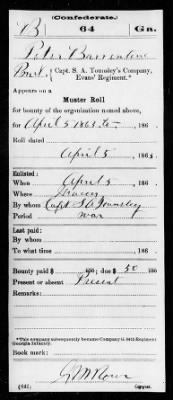 (Confederate.)
B 64 Ga.
Peter
Pvt., Capt. S. A. Townsley's Company,
Evans' Regiment.*
Appears on a
Muster Roll
for bounty of the organization named above,
for April 5 1863 to , 186
Roll dated
April 5 , 1863
Enlisted:
When April 5 , 186
Where
By whom Capt S A Townsley
Period war
Last paid:
By whom
To what time , 186
Bounty paid $ 100; due $ 50 100
Present or absent Present
Remarks:
*This company subsequently became Company G 64th Regiment
Georgia Infantry.
Book mark:
(641) Copyist.